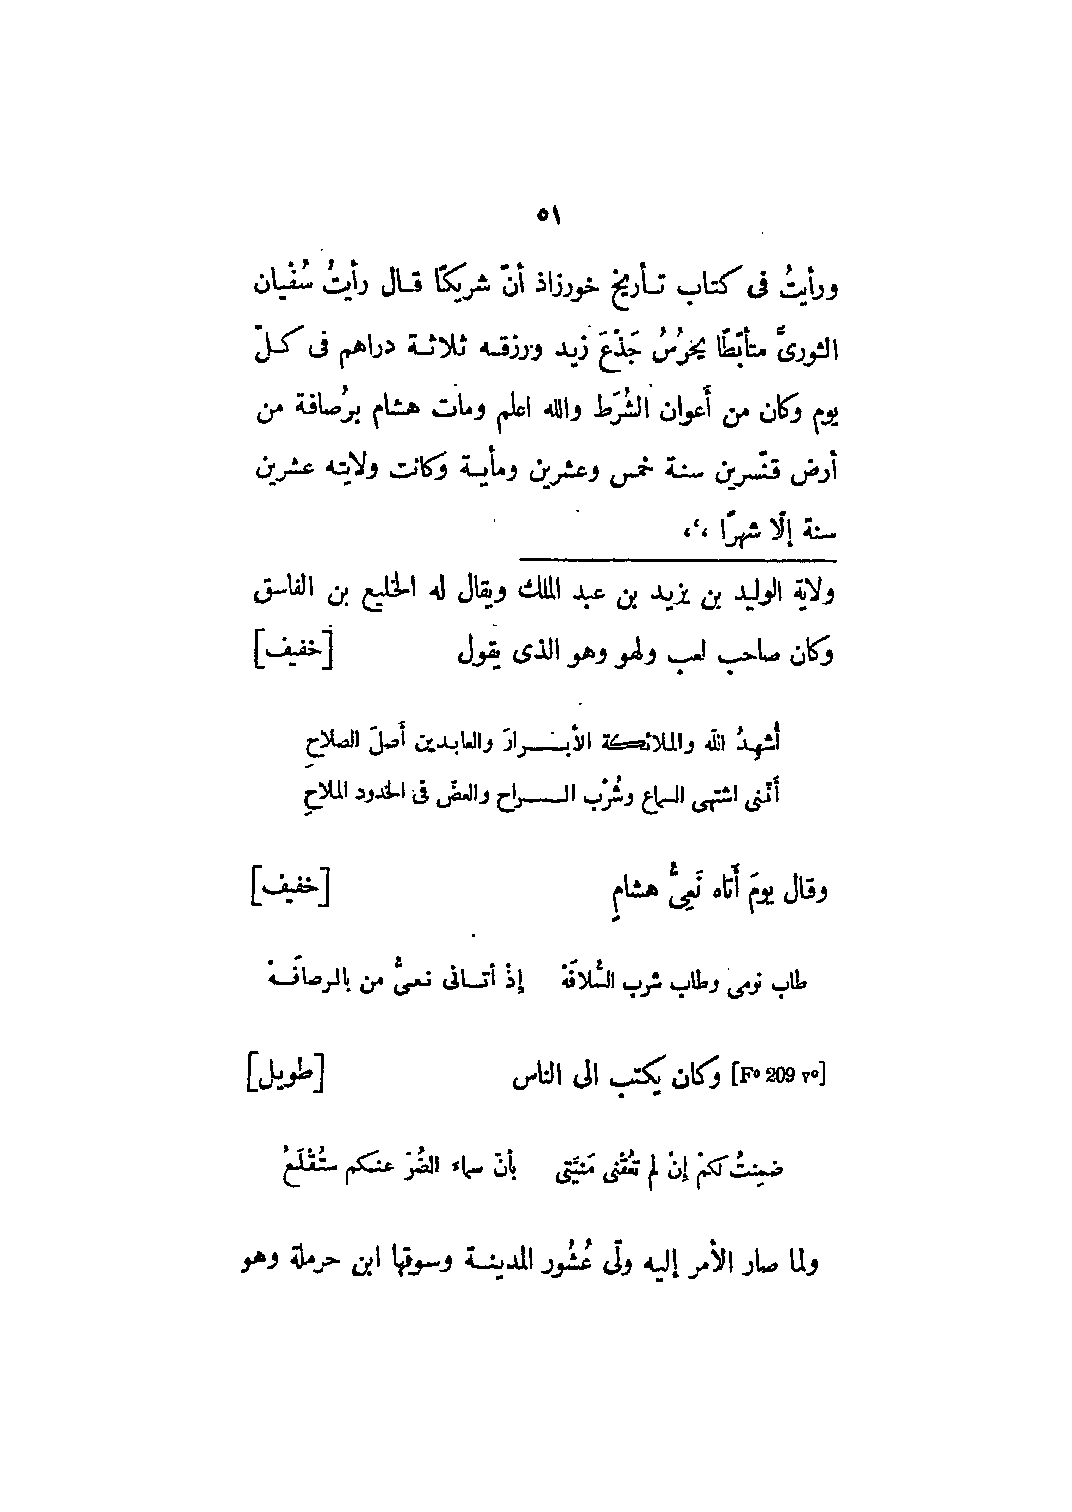 ٥١
ورأيتُ فى كتاب تـأريخ خورزاذ أنّ شريكًا قـال رأيتُ سُفْيان
الثورىَّ متأبّطًا يحرُسُ جَذْعَ زيد ورزقـه ثلاثـة دراهم فى كـلّ
يوم وكان من أَعوان الشُرَط والله اعلم ومات هشام برُصافة من
أرض قنّسرين سنة خمس وعشرين ومأيـة وكانت ولايته عشرين
سنة إلّا شهرًا ،‘،
ولاية الوليد بن يزيد بن عبد الملك ويقال له الخليع بن الفاسق
وكان صاحب لعب ولهو وهو الذى يقول [خفيف]
أُشهِدُ الله والملائكة الأبـــرارَ والعابدين أَصلَ الصلاحِ
أَنّنى اشتهى السماع وشُرْب الـــراح والعضّ فى الخدود الملاحِ
وقال يومَ أَتاه نَعِىُّ هشامٍ [خفيف]
طاب نومى وطاب شرب السُّلافَهْ إذْ أتـانى نـعىُّ من بالرصافَـهْ
[Fº 209 vº] وكان يكتب الى الناس [طويل]
ضمِنتُ لكمْ إنْ لم تَعُقْنى مَنيَّتى بأنّ سماء الضُرّ عنكم ستُقْلَعُ
ولما صار الأمر إليه ولّى عُشُور المدينـة وسوقها ابن حرملة وهو